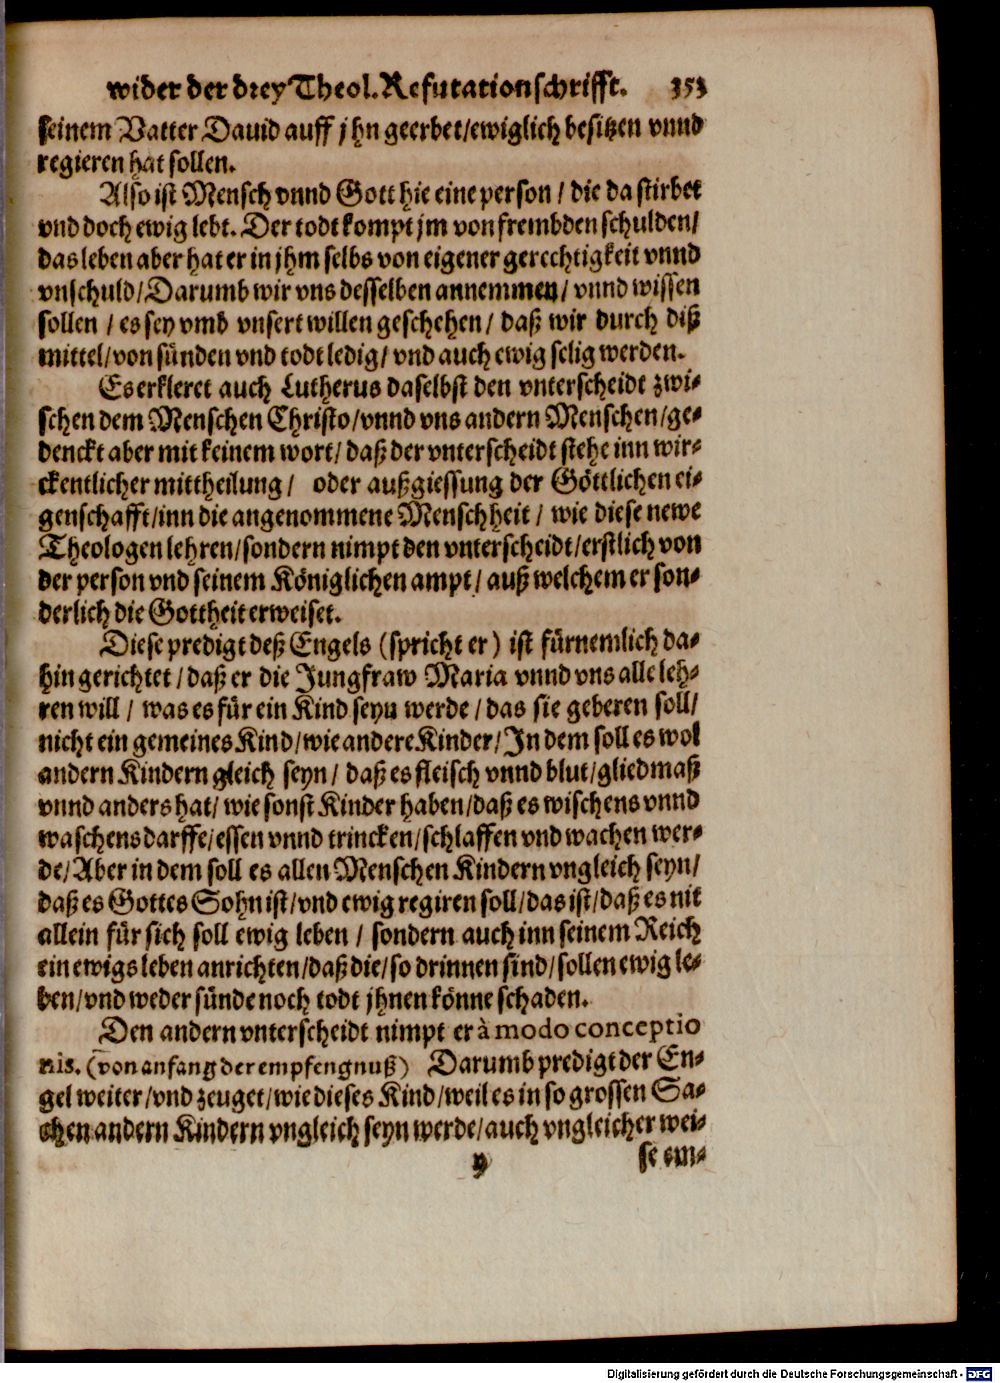 wider der drey Theol. Refutationschrifft. 353
seinem Vatter Dauid auff jhn geerbet/ewiglich besitzen vnnd
regieren hat sollen.
Also ist Mensch vnnd Gott hie eine person / die da stirbet
vnd doch ewig lebt. Der todt kompt jm von frembden schulden/
das leben aber hat er in jhm selbs von eigener gerechtigkeit vnnd
vnschuld/Darumb wir vns desselben annemmen/ vnnd wissen
sollen / es sey vmb vnsert willen geschehen/ daß wir durch diß
mittel/von sünden vnd todt ledig/ vnd auch ewig selig werden.
Es erkleret auch Lutherus daselbst den vnterscheidt zwi-
schen dem Menschen Christo/vnnd vns andern Menschen/ge-
denckt aber mit keinem wort/ daß der vnterscheidt stehe inn wir-
ckentlicher mittheilung/ oder außgiessung der Göttlichen ei-
genschafft/inn die angenommene Menschheit / wie diese newe
Theologen lehren/sondern nimpt den vnterscheidt/erstlich von
der person vnd seinem Königlichen ampt/ auß welchem er son-
derlich die Gottheit erweiset.
Diese predigt deß Engels (spricht er) ist fürnemlich da-
hin gerichtet/ daß er die Jungfraw Maria vnnd vns alle leh-
ren will / was es für ein Kind seyn werde / das sie geberen soll/
nicht ein gemeines Kind/wie andere Kinder/In dem soll es wol
andern Kindern gleich seyn/ daß es fleisch vnnd blut/gliedmaß
vnnd anders hat/ wie sonst Kinder haben/daß es wischens vnnd
waschens darffe/essen vnnd trincken/schlaffen vnd wachen wer-
de/Aber in dem soll es allen Menschen Kindern vngleich seyn/
daß es Gottes Sohn ist/vnd ewig regiren soll/das ist/daß es nit
allein für sich soll ewig leben / sondern auch inn seinem Reich
ein ewigs leben anrichten/daß die/so drinnen sind/sollen ewig le-
ben/vnd weder sünde noch todt jhnen könne schaden.
Den andern vnterscheidt nimpt er à modo conceptio
nis. (von anfang der empfengnuß) Darumb predigt der En-
gel weiter/vnd zeuget/wie dieses Kind/weil es in so grossen Sa-
chen andern Kindern vngleich seyn werde/auch vngleicher wei-
y se em-
Digitalisierung gefördert durch die Deutsche Forschungsgemeinschaft - DFG